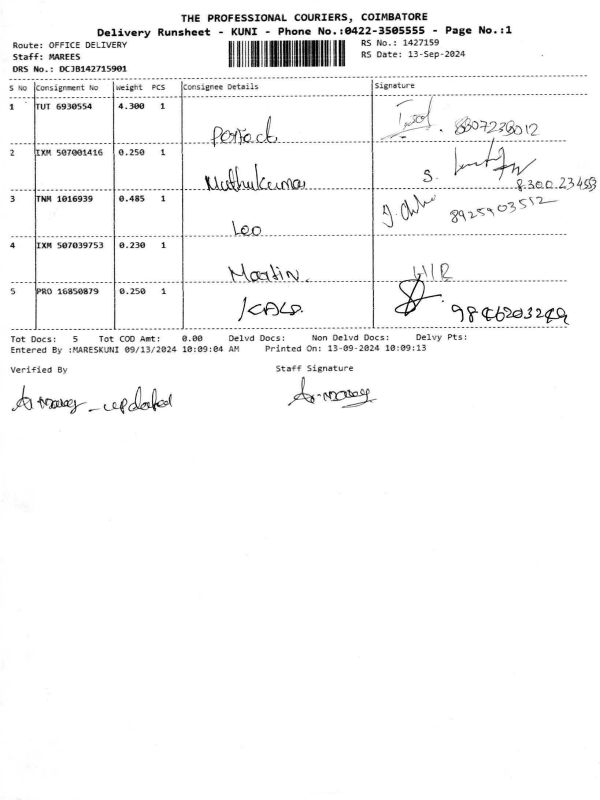 THE PROFESSIONAL COURIERS, COIMBATORE
Delivery Runsheet - KUNI - Phone No.:0422-3505555 - Page No.:1
Route: OFFICE DELIVERY RS No.: 1427159
Staff: MAREES RS Date: 13-Sep-2024
DRS No.: DCJB142715901
S No Consignment No Weight PCS Consignee Details Signature
1 TUT 6930554 4.300 1
Perfect 8807238012
2 IXM 507001416 0.250 1
Muthukumar S.
8.300.234553
3 TNM 1016939 0.485 1
Leo 8925903512
4 IXM 507039753 0.230 1
Martin.
5 PRO 16850879 0.250 1
Tot Docs: 5 Tot COD Amt: 0.00 Delvd Docs: Non Delvd Docs: Delvy Pts:
Entered By :MARESKUNI 09/13/2024 10:09:04 AM Printed On: 13-09-2024 10:09:13
Verified By Staff Signature
updated